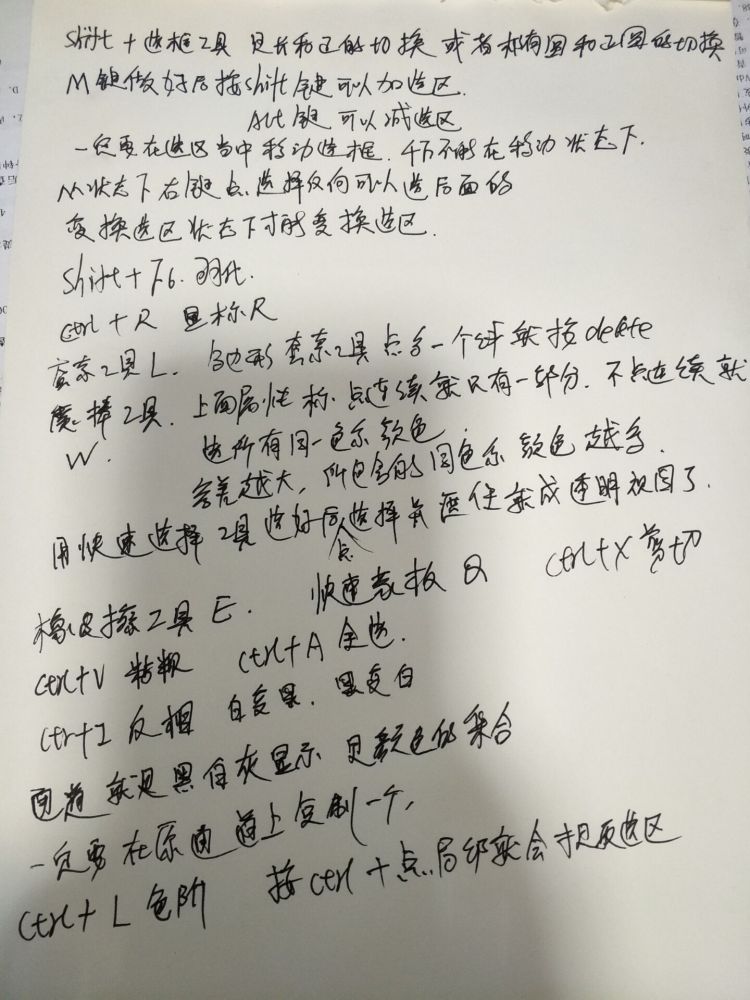 Shift + 选框工具 是长和正的切换 或者椭有圆和正圆的切换
M键做好后按shift键可以加选区.
Alt键可以减选区
一定要在选区当中移动选框. 千万不能在移动状态下.
M状态下右键点.选择任何可以选后面的
变换选区状态下才能变换选区.
Shift + F6. 羽化.
ctrl + R 显标尺
套索工具L. 多边形套索工具点多一个时就按delete
魔棒工具. 上面属性标.点连续就只有一部分. 不点连续就
W. 选所有同一色系颜色.
容差越大, 所包含的同色系颜色越多.
用快速选择工具选好后点选择并遮住就成透明视图了.
橡皮擦工具 E. 快速蒙板 Q ctrl+X 剪切
ctrl+V 粘贴 ctrl+A 全选.
ctrl+I 反相 白变黑. 黑变白
通道就是黑白灰显示 是颜色的集合
一定要在原通道上复制一个,
ctrl + L 色阶 按ctrl + 点.局部就会出现选区